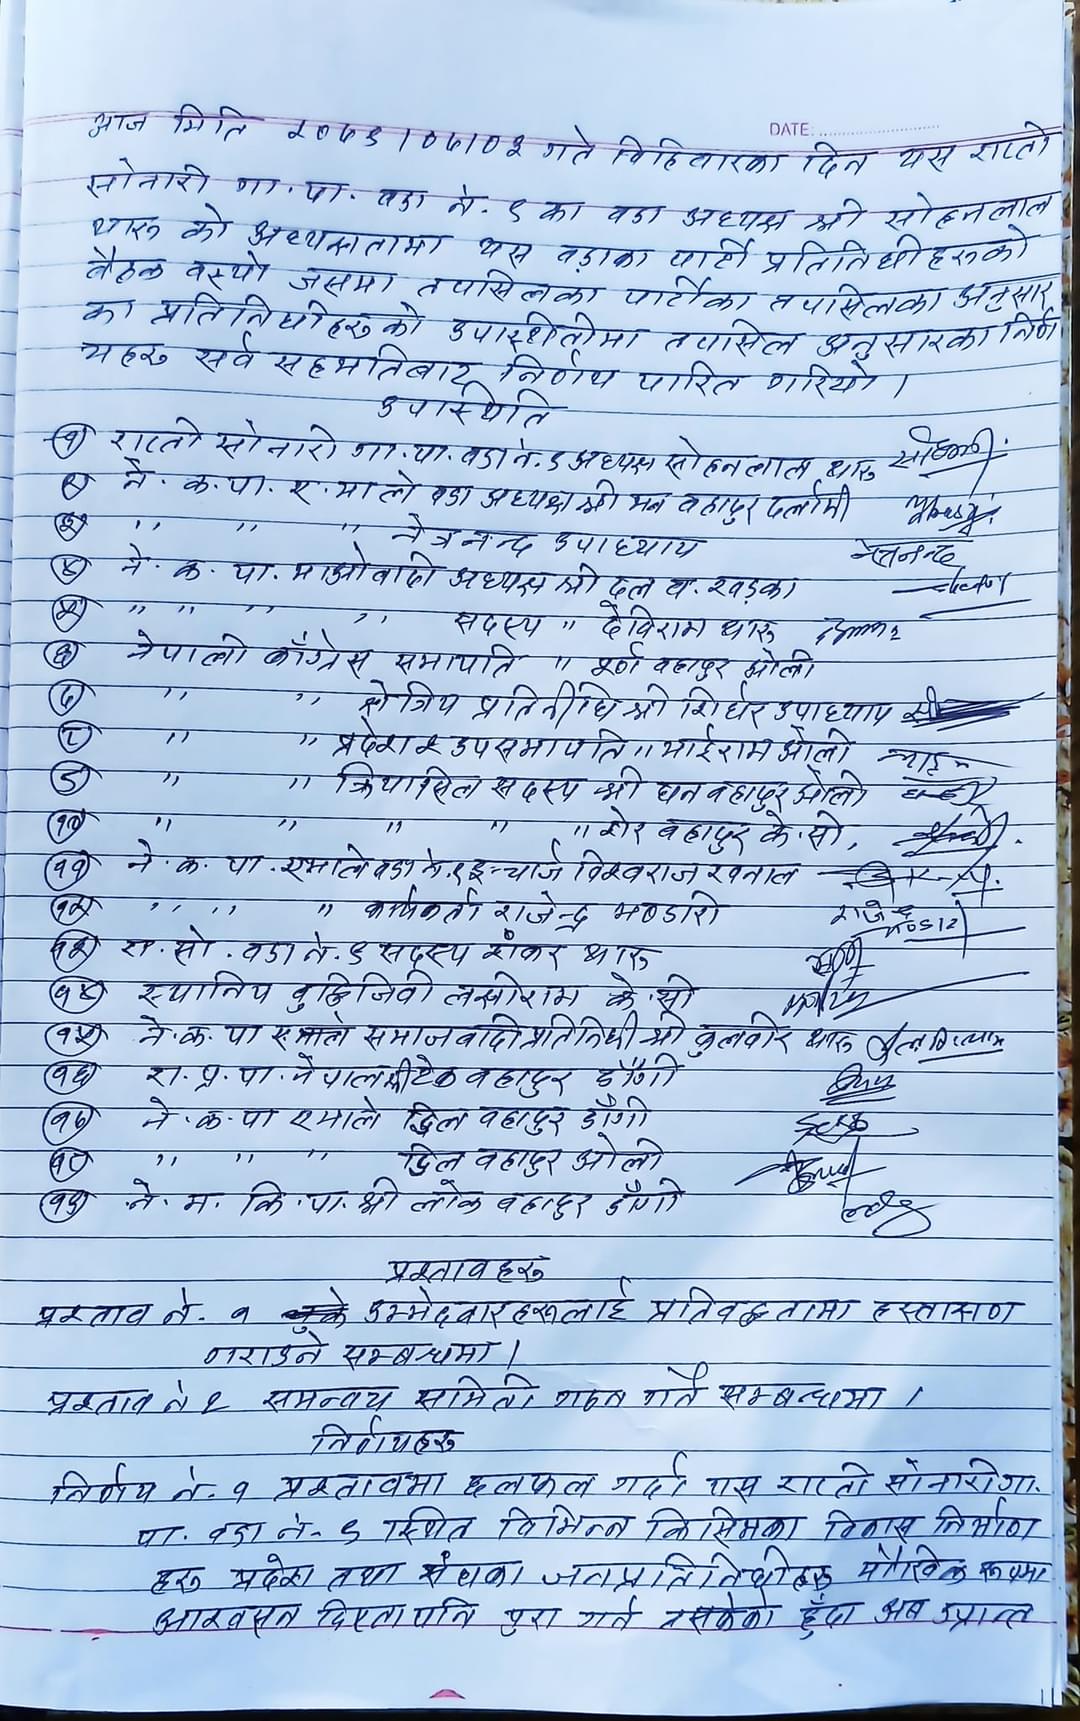 DATE:
आज मिति २०७९।०७।०३ गते विहिवारका दिन यस राप्ती
सोनारी गा.पा. वडा नं. ९ का वडा अध्यक्ष श्री सोहनलाल
थारु को अध्यक्षतामा यस वडाका पार्टी प्रतिनिधीहरुको
बैठक वस्यो जसमा तपासिलका पार्टीका तपासिलका अनुसार
का प्रतिनिधीहरु को उपास्थीतीमा तपासिल अनुसारका निर्ण
यहरु सर्व सहमतिबाट निर्णय पारित गरियो।
उपास्थिति
(१) राप्ती सोनारी गा.पा. वडा नं. ९ अध्यक्ष सोहनलाल थारु
(२) ने. क. पा. ए. माले वडा अध्यक्ष श्री मन बहादुर दर्लामी
(३) ,, ,, ,, नेत्रनन्द उपाध्याय नेत्रनन्द
(४) ने. क. पा. माओवादी अध्यक्ष श्री दल ब. खड्का
(५) ,, ,, ,, ,, सदस्य ,, देविराम थारु
(६) नेपाली काँग्रेस सभापति ,, बहादुर ओली
(७) ,, ,, क्षेत्रिय प्रतिनीधि श्री उपाध्याय
(८) ,, ,, प्रदेश २ उपसभापति ,, भाईराम ओली
(९) ,, ,, क्रियासिल सदस्य श्री धन बहादुर ओली
(१०) ,, ,, ,, ,, ,, शेर बहादुर के.सी.
(११) ने. क. पा. एमाले वडा नं. ९ इन्चार्ज विश्वराज खनाल
(१२) ,, ,, ,, कार्यकर्ता राजेन्द्र भण्डारी राजेन्द्र
(१३) रा. सो. वडा नं. ९ सदस्य शंकर थारु
(१४) स्थानिय वुद्धिजिवी के.सी
(१५) ने. क. पा एमाले समाजवादी प्रतिनिधी श्री कुलवीर थारु
(१६) रा. प्र. पा. नेपाल श्री टेक बहादुर डाँगी
(१७) ने. क. पा एमाले डिल बहादुर डाँगी
(१८) ,, ,, ,, डिल बहादुर ओली
(१९) ने. म. कि. पा. श्री लोक बहादुर डाँगी
प्रस्तावहरु
प्रस्ताव नं. १ उम्मेदवारहरुलाई प्रतिवद्धतामा हस्ताक्षण
गराउने सम्बन्धमा।
प्रस्ताव नं २ समन्वय समिती गठन गर्ने सम्बन्धमा।
निर्णयहरु
निर्णय नं. १ प्रस्तावमा छलफल गर्दा यस राप्ती सोनारी गा.
पा. वडा नं. ९ स्थित विभिन्न किसिमका विकास निर्माण
हरु प्रदेश तथा संघका जनप्रतिनिधीहरु मौखिक रूपमा
आश्वसन दिएतापनि पुरा गर्न नसकेको हुँदा अब उप्रान्त